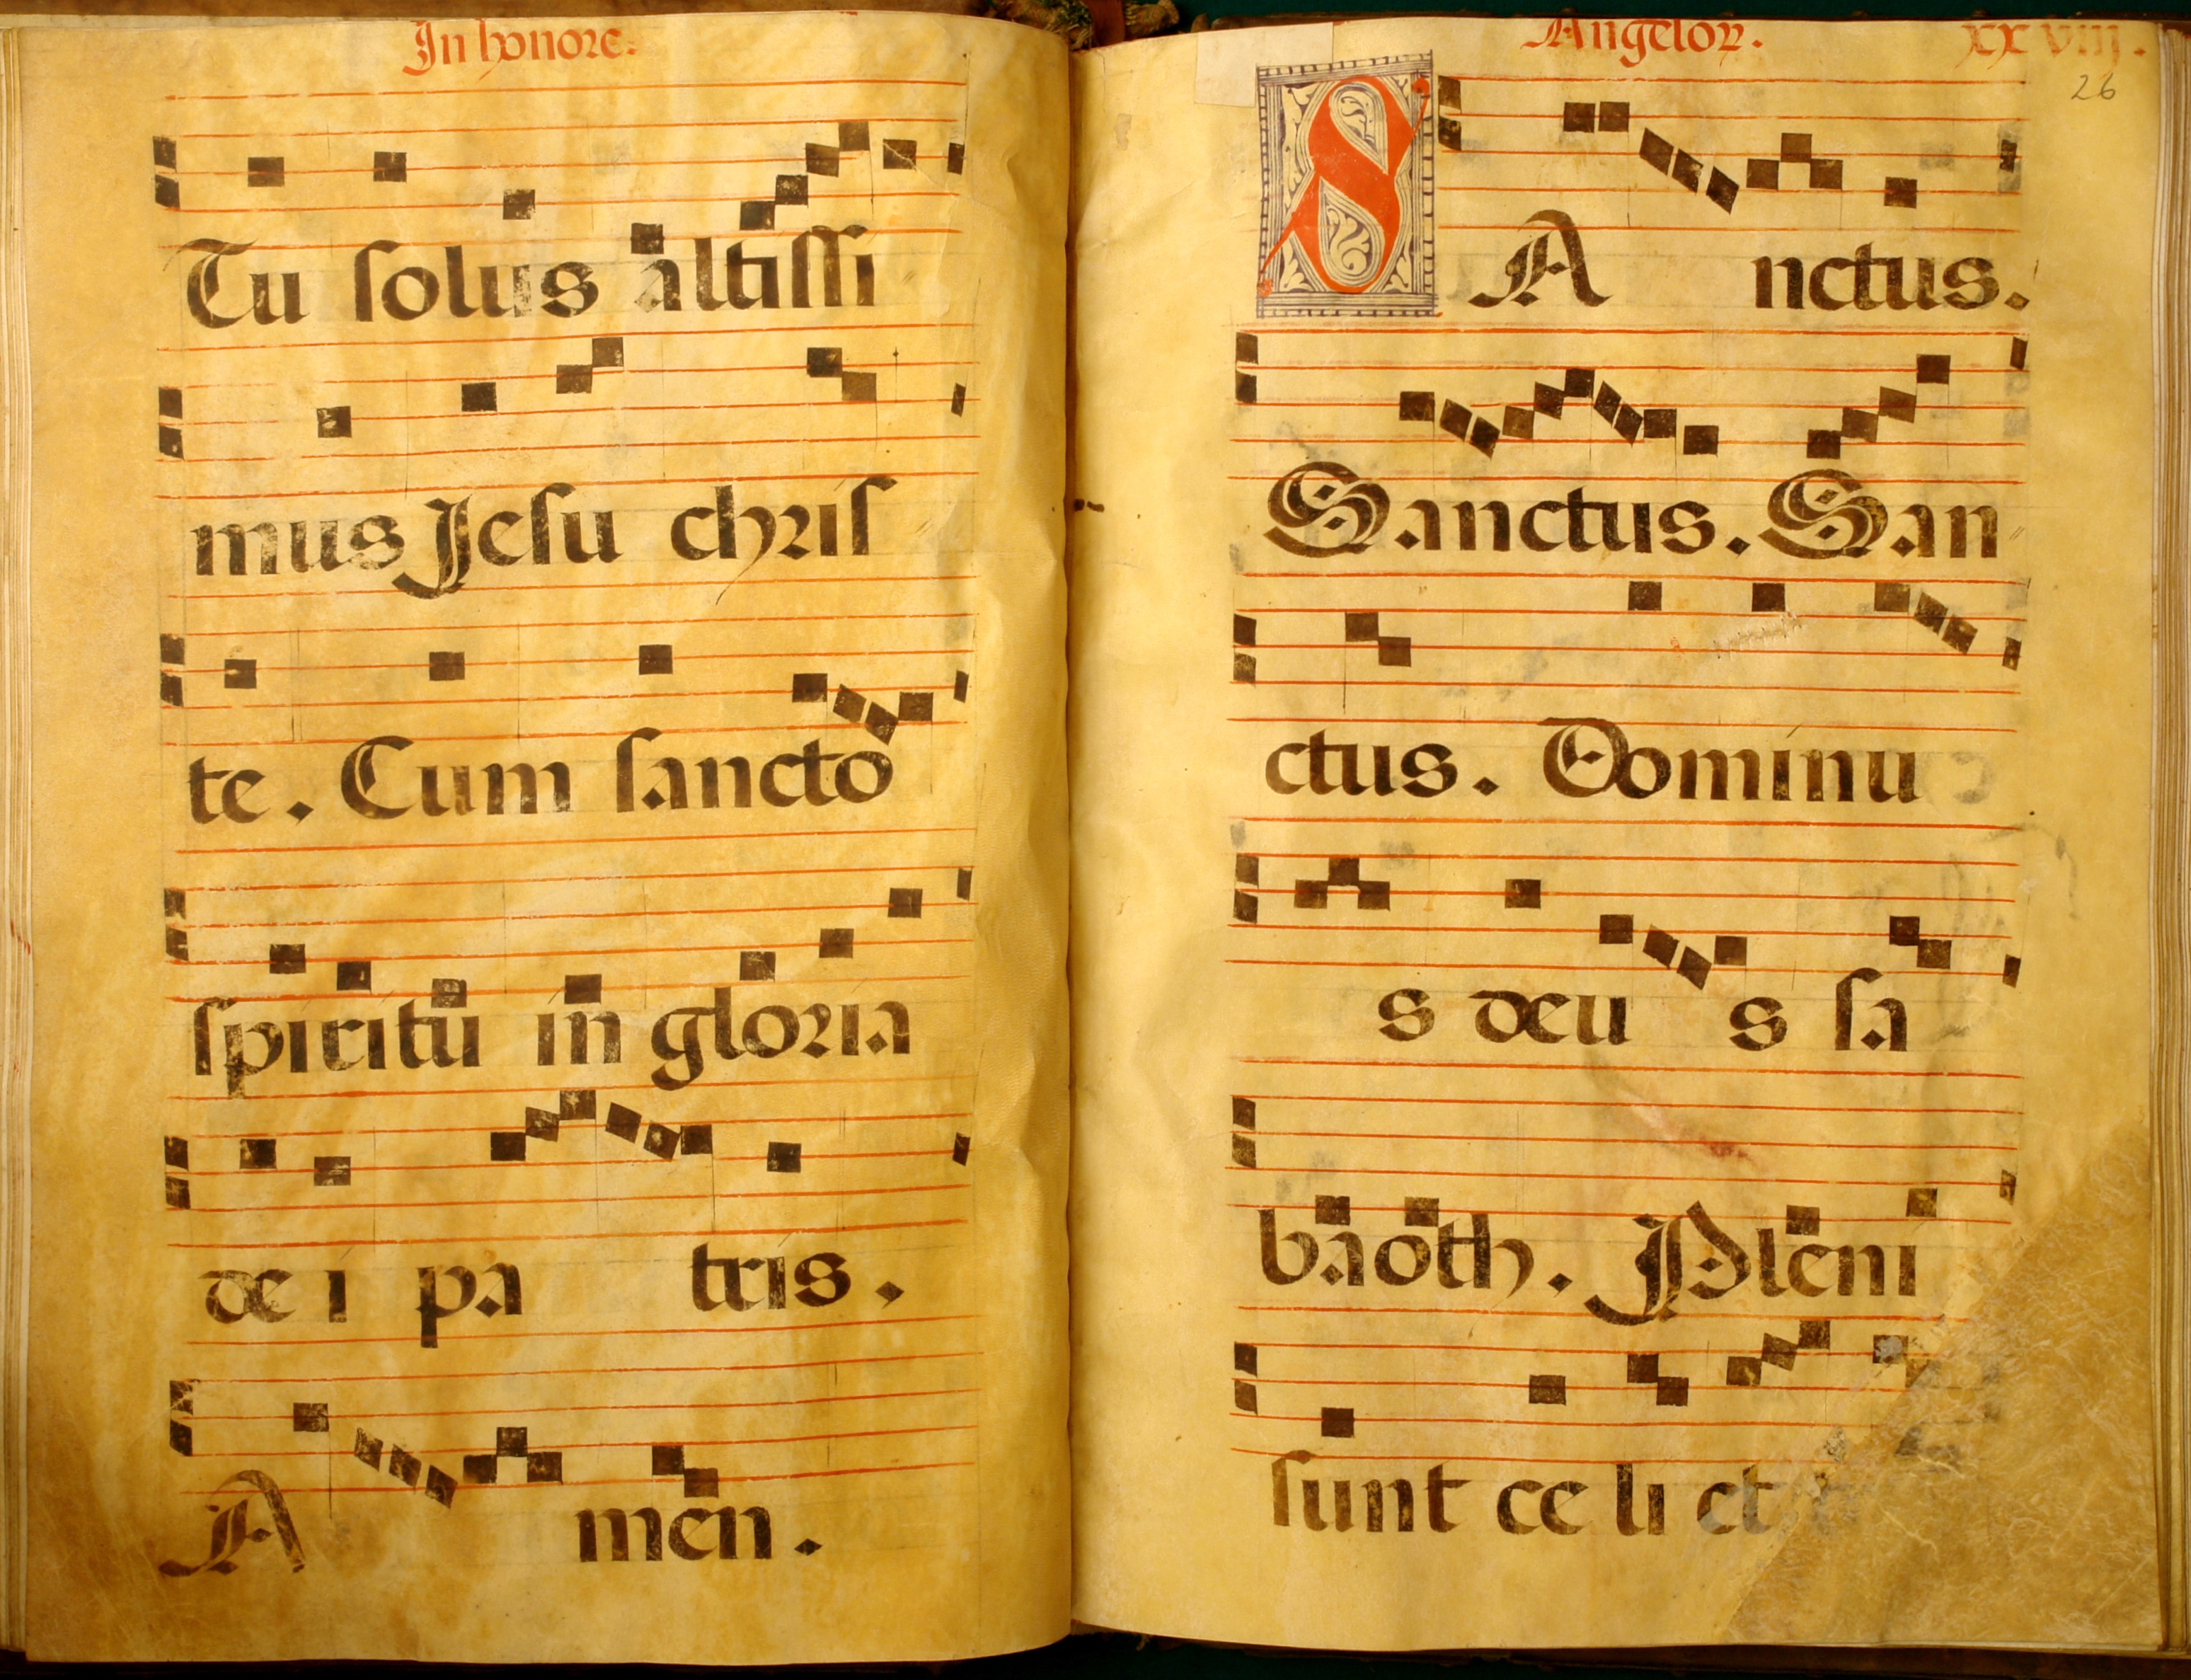 In honore.
Tu solus altissi
mus Jesu chris
te. Cum sancto
spiritu in gloria
de i pa tris.
A men.
Angeloꝝ. xxviiij.
26
SA nctus.
Sanctus. San
ctus. Dominu
s deu s sa
baoth. Pleni
sunt ce li et